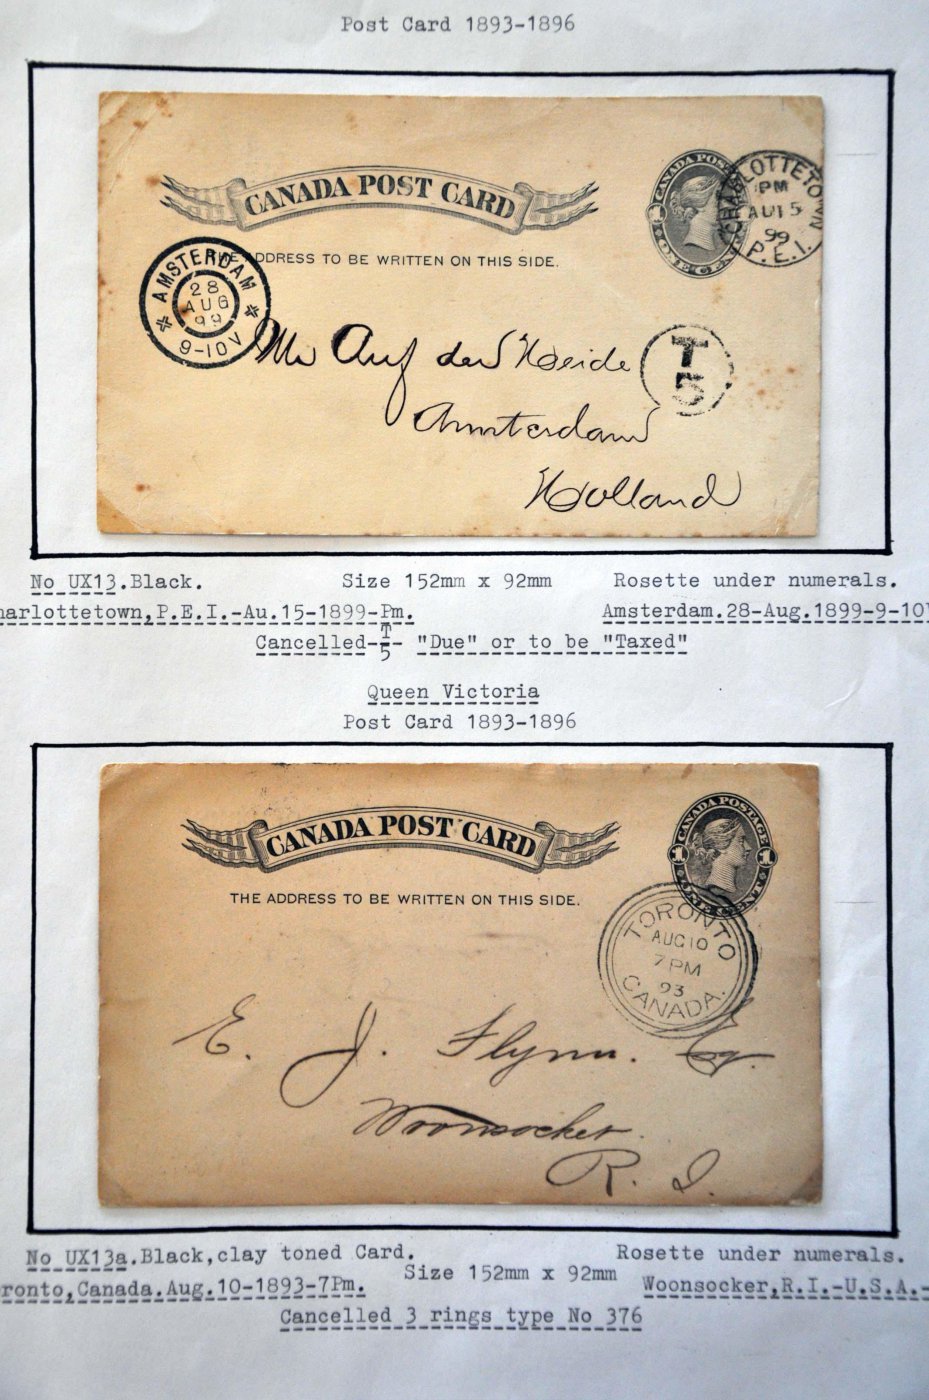 Post Card 1893-1896
CANADA POST CARD
THE ADDRESS TO BE WRITTEN ON THIS SIDE.
CANADA POS
1
ONE CENT
CHARLOTTETOWN
PM
AU 15
99
P.E.I.
AMSTERDAM
28
AUG
99
9-10V
Mr Auf der Heide
T
5
Amsterdam
Holland
No UX13.Black. Size 152mm x 92mm Rosette under numerals.
harlottetown,P.E.I.-Au.15-1899-Pm. Amsterdam.28-Aug.1899-9-10V
Cancelled-T/5- "Due" or to be "Taxed"
Queen Victoria
Post Card 1893-1896
CANADA POST CARD
THE ADDRESS TO BE WRITTEN ON THIS SIDE.
CANADA POSTAGE
1 1
ONE CENT
TORONTO
AUG 10
7 PM
93
CANADA.
E. J. Flynn. Esq.
Woonsocket.
R. I.
No UX13a.Black,clay toned Card. Rosette under numerals.
ronto,Canada.Aug.10-1893-7Pm. Size 152mm x 92mm Woonsocker,R.I.-U.S.A.-
Cancelled 3 rings type No 376